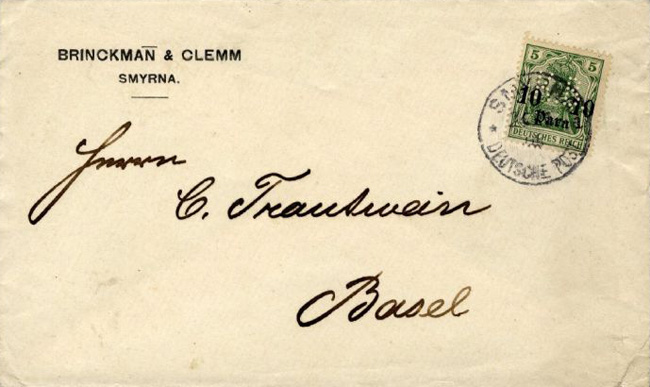 BRINCKMAN̅ & CLEMM
SMYRNA.
5 5
10 10
Para
DEUTSCHES REICH
DEUTSCHE POST
Herrn
C. Trautwein
Basel